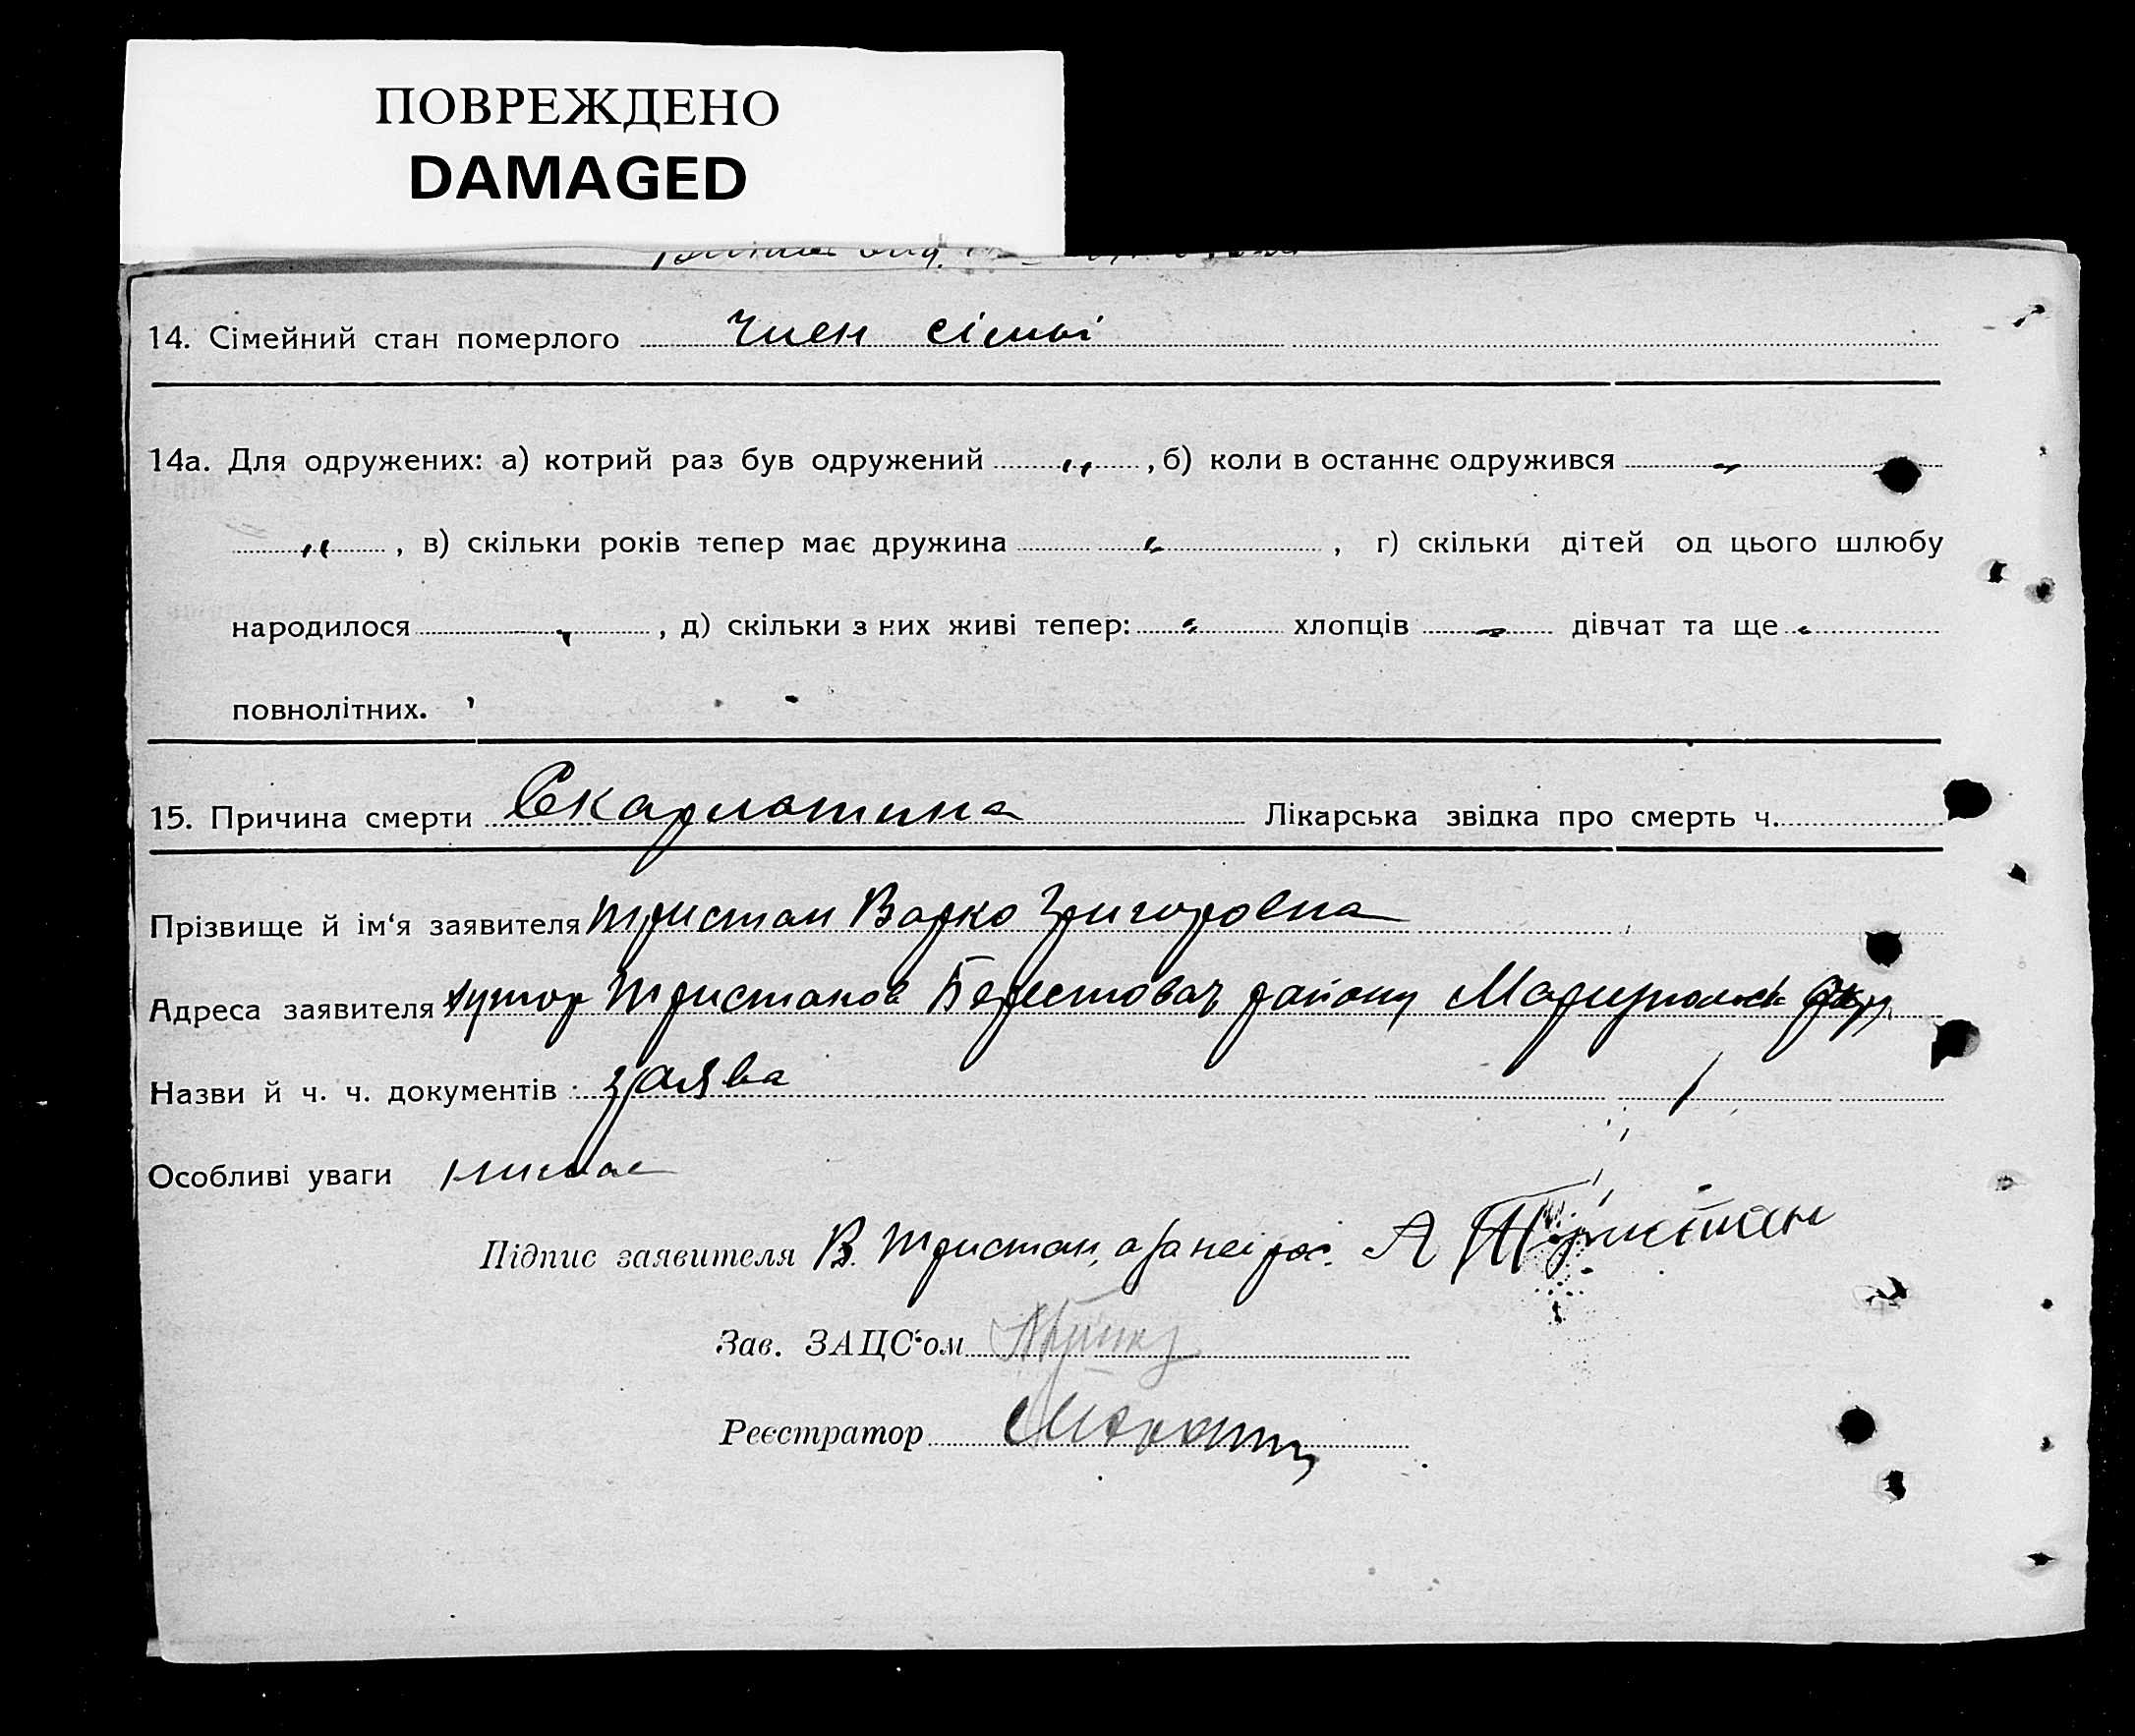 ПОВРЕЖДЕНО
DAMAGED
14. Сімейний стан померлого член сімьі
14а. Для одружених: а) котрий раз був одружений „ , б) коли в останнє одружився „
„ , в) скільки років тепер має дружина „ , г) скільки дітей од цього шлюбу
народилося „ , д) скільки з них живі тепер: „ хлопців „ дівчат та ще „
повнолітних.
15. Причина смерти Скарлатина Лікарська звідка про смерть ч.
Прізвище й ім'я заявителя Тристан Варко Григоровна
Адреса заявителя хутор Тристанов Берестоваг району Мариупольск окру
Назви й ч. ч. документів: заява
Особливі уваги нимае
Підпис заявителя В. Тристан, а за неі рос. А Тристан
Зав. ЗАЦС'ом
Реєстратор